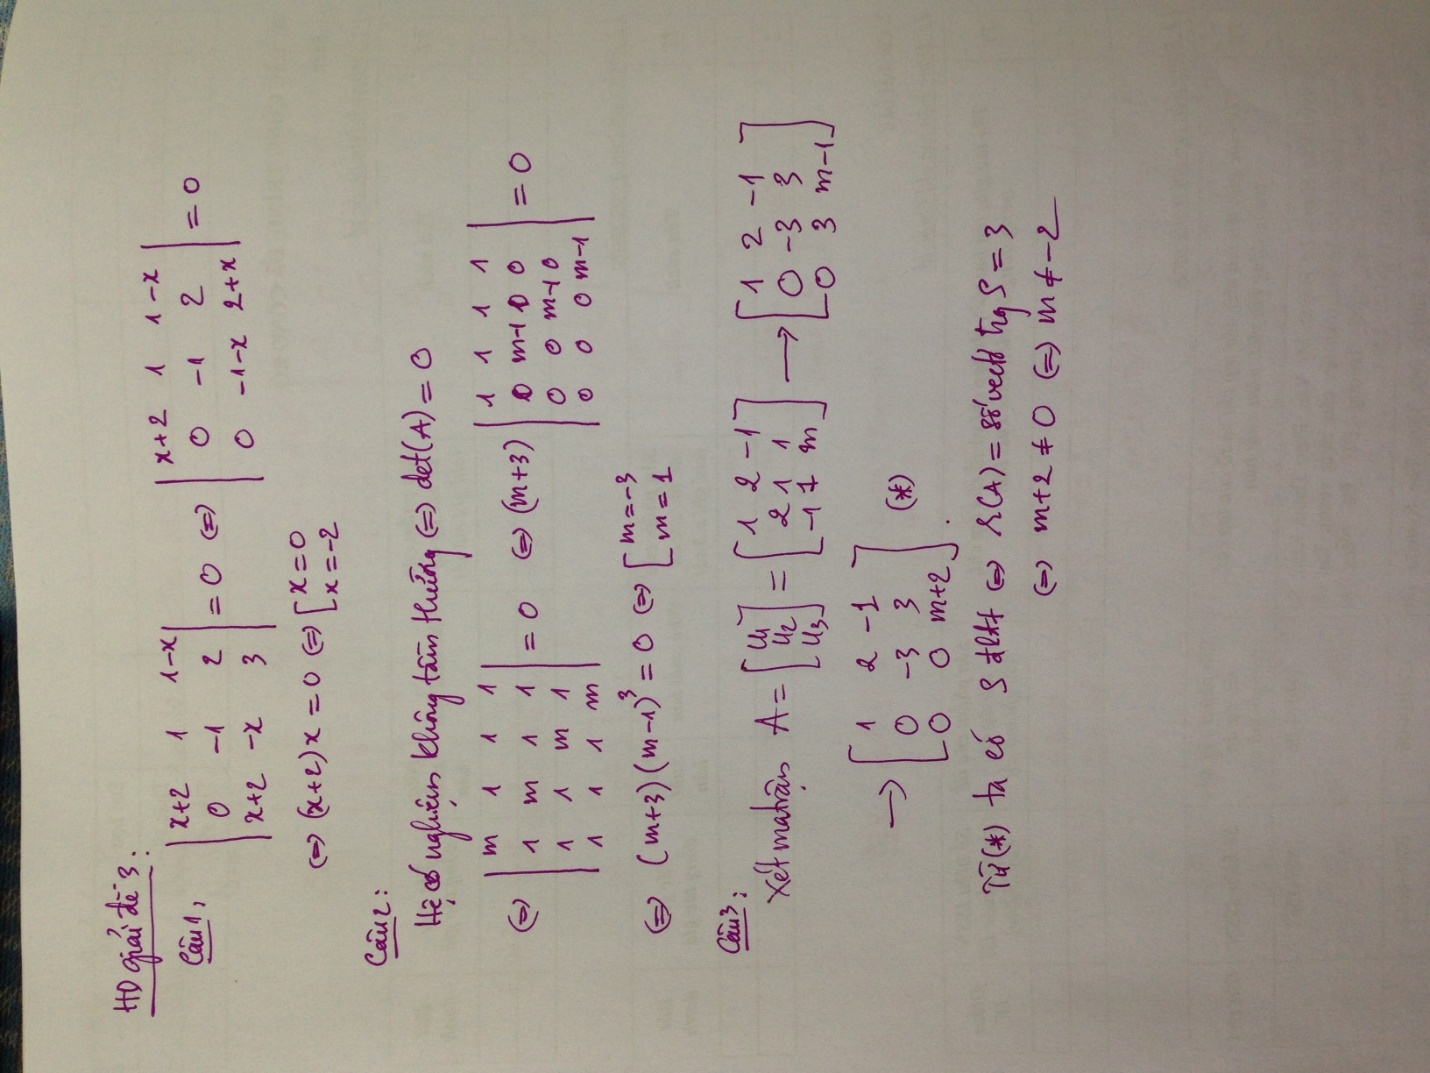 HD giải đề 3:
Câu 1,
| x+2 1 1-x | = 0 (=) | x+2 1 1-x | = 0
| 0 -1 2 | | 0 -1 2 |
| x+2 -x 3 | | 0 -1-x 2+x |
(=) (x+2)x = 0 (=) [ x=0
x=-2
Câu 2:
Hệ có nghiệm không tầm thường (=) det(A) = 0
(=) | m 1 1 1 | = 0 (=) (m+3) | 1 1 1 1 | = 0
| 1 m 1 1 | | 0 m-1 0 0 |
| 1 1 m 1 | | 0 0 m-1 0 |
| 1 1 1 m | | 0 0 0 m-1 |
(=) (m+3)(m-1)³ = 0 (=) [ m=-3
m=1
Câu 3:
Xét ma trận A = [ u1 ] = [ 1 2 -1 ] → [ 1 2 -1 ]
[ u2 ] [ 2 1 1 ] [ 0 -3 3 ]
[ u3 ] [ -1 1 m ] [ 0 3 m-1 ]
→ [ 1 2 -1 ] (*)
[ 0 -3 3 ]
[ 0 0 m+2 ].
Từ (*) ta có S đltt (=) r(A) = số vectơ trg S = 3
(=) m+2 ≠ 0 (=) m ≠ -2